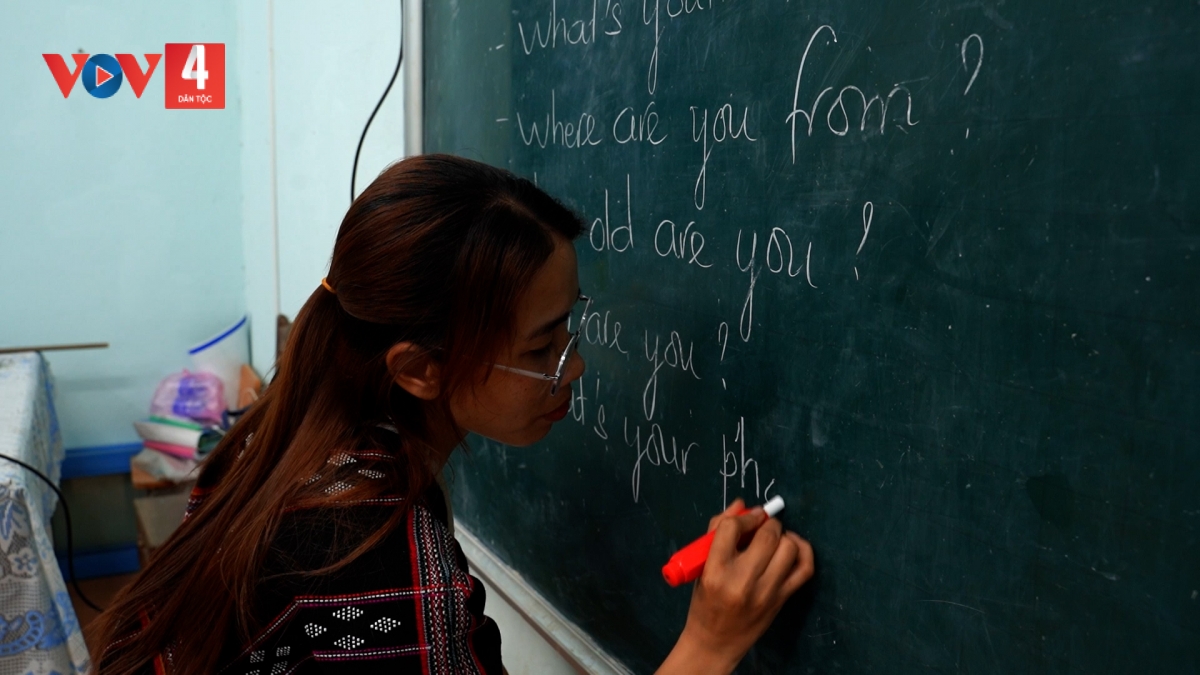 VOV4
DÂN TỘC
- what's your
- where are you from ?
old are you ?
are you ?
t's your pho